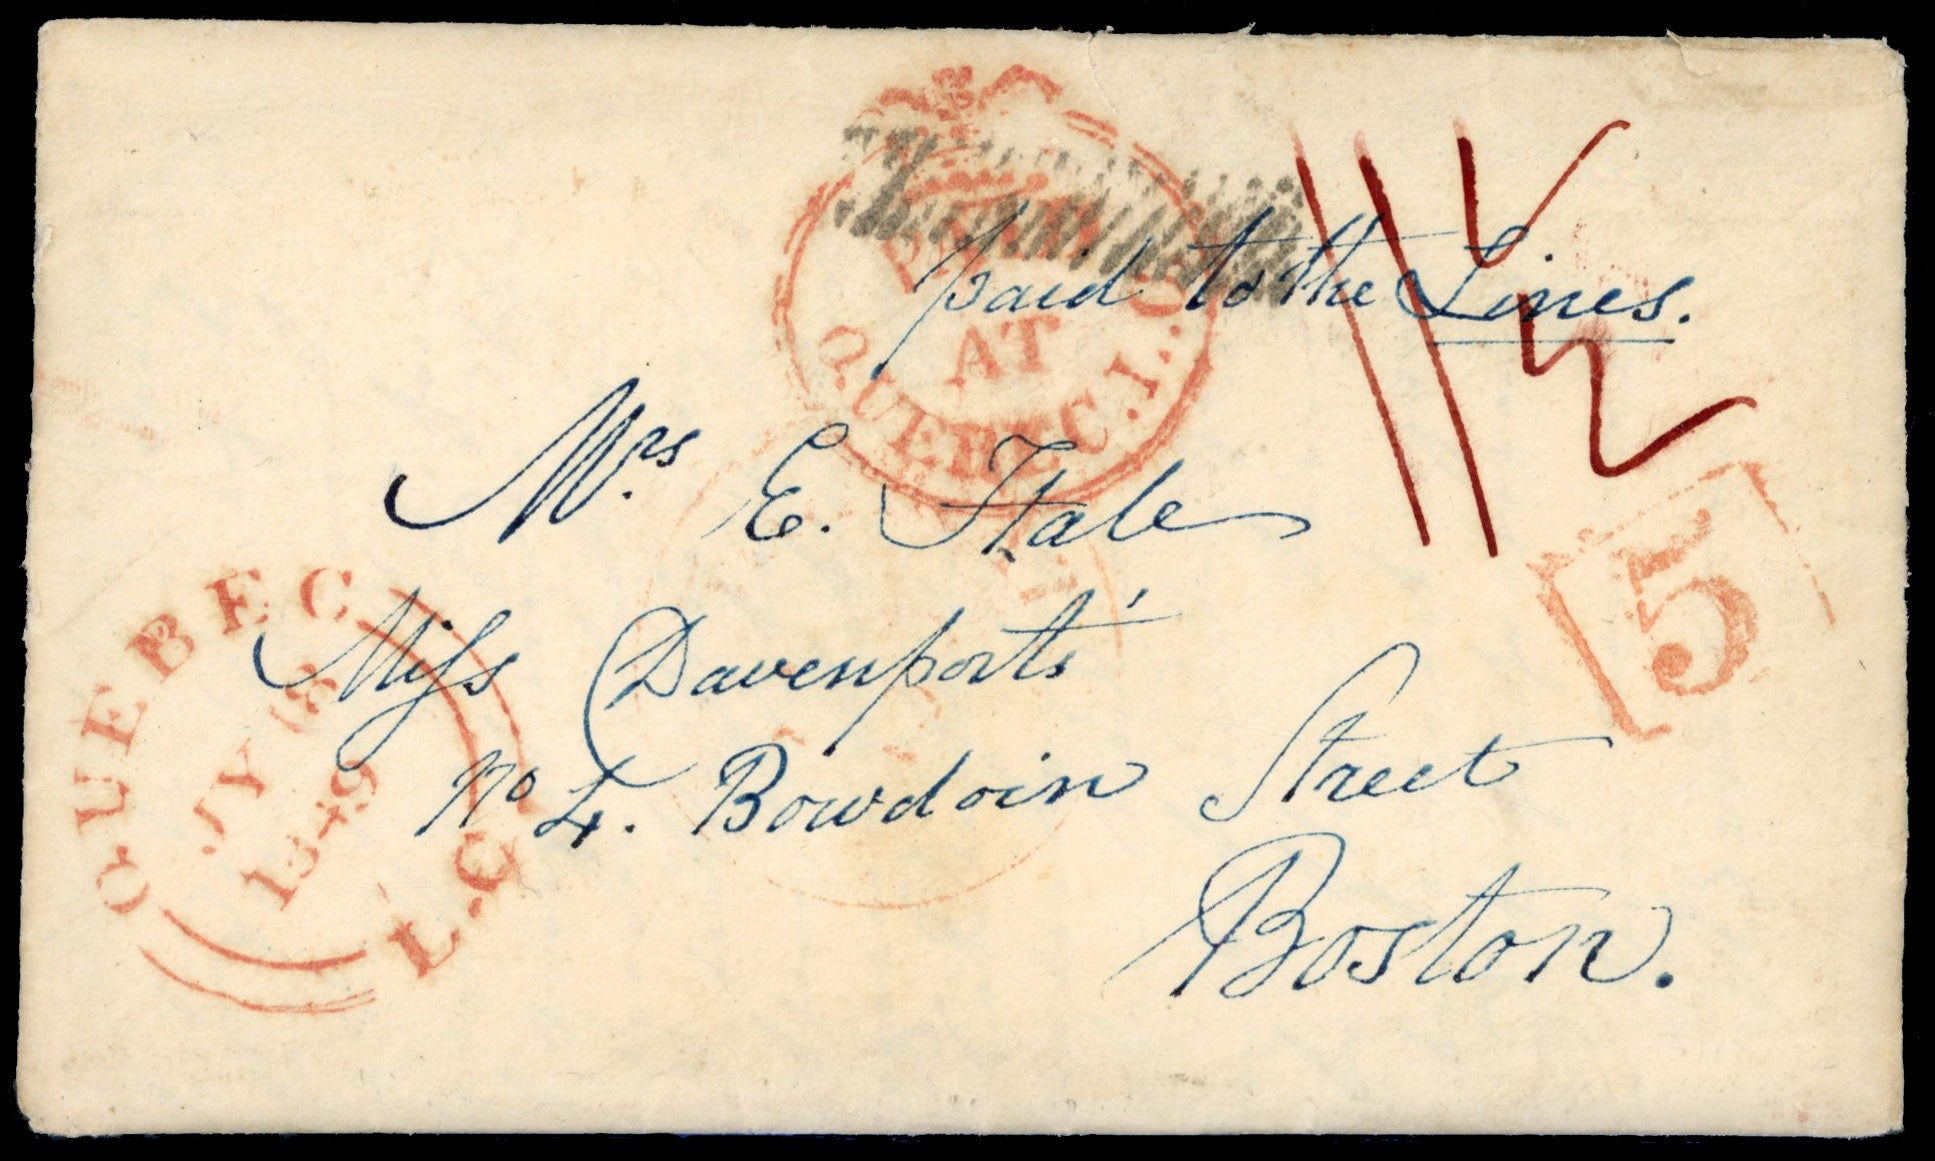 paid to the Lines.
11½
AT
QUEBEC. L. C
Mrs E. Hale
5
Miss Davenports'
No 4. Bowdoin Street
Boston.
QUEBEC L.C
JY 18
1849